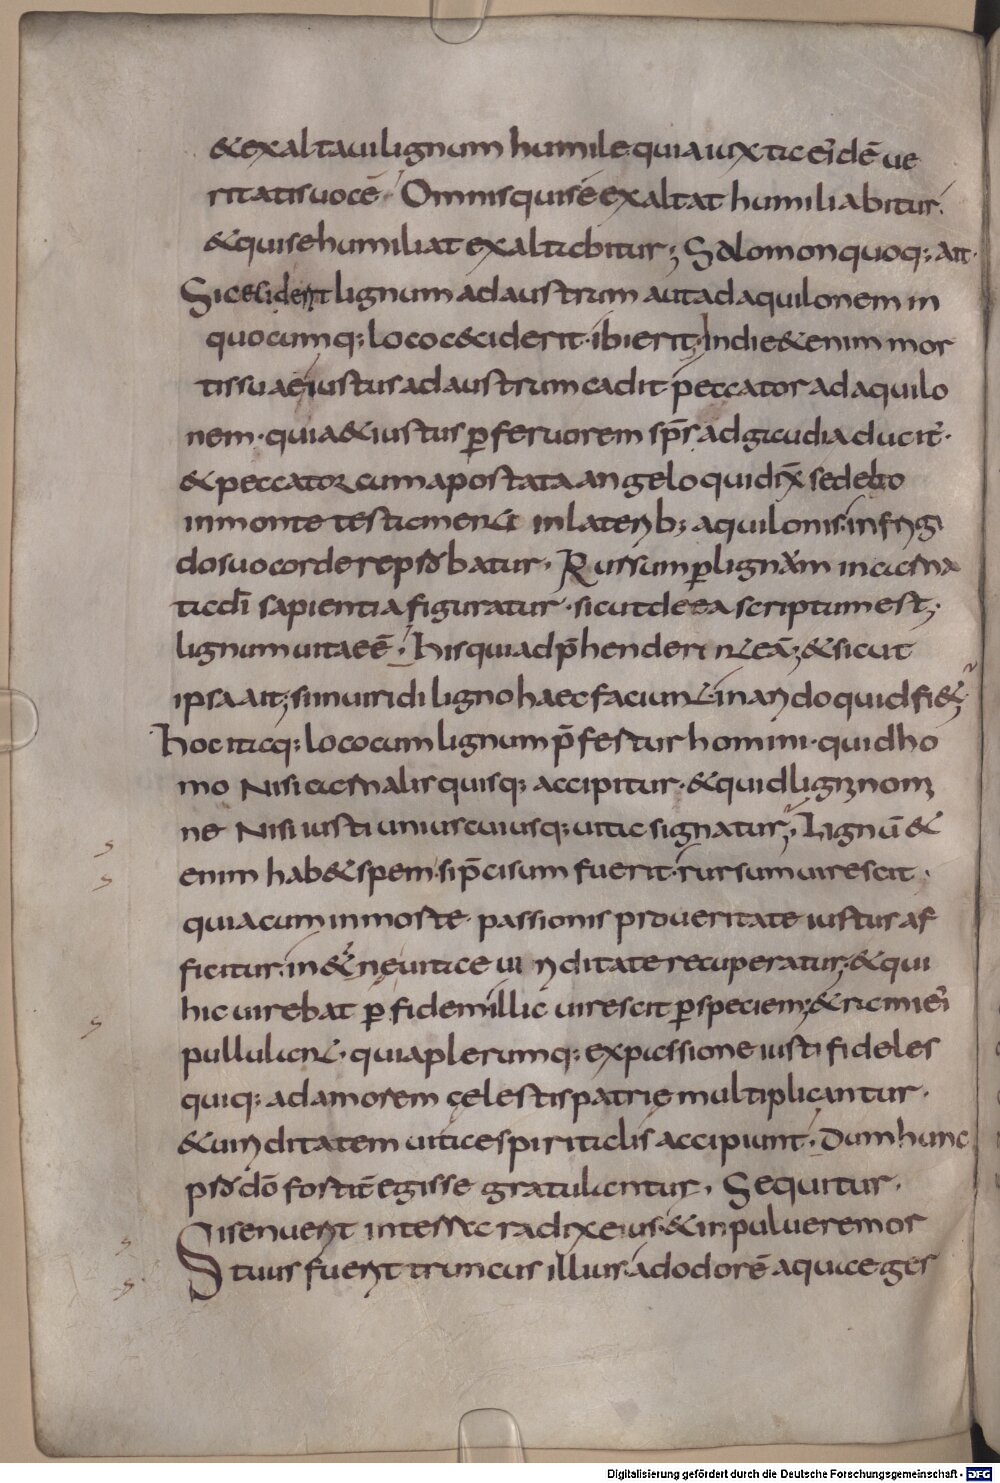 &exaltauilignum humile quia iuxtaei̅dē ue
ritatisuocē Omnisquiseexaltat humiliabitur.
&quisehumiliat exaltabitur; Salomonquoq; ait.
Siceciderit lignum adaustrum autadaquilonem in
quocumq; lococ&ciderit. ibierit; Indie&enim mor
tissuae iustusadaustrum cadit peccator adaquilo
nem. quia&iustus p̲feruorem sp̄s adgaudiaducit̄.
&peccator cumapostata angelo quidix̄ sedebo
inmonte testamenti inlaterib; aquilonis. infrigi
dosuocorde reprobatur. Rursum p̲lignum incarna
tadi̅ sapientia figuratur. sicutdeea scriptumest;
lignum uitaeē. hisquiadp̄henderint eā; &sicut
ipsaait; siinuiridi ligno haecfaciunt. inarido quidfi&;
hocitaq; lococumlignum p̄fertur homini. quidho
mo nisi carnalis quisq; accipitur. &quid ligninomi
ne nisi iusti uniuscuiusq; uita signatur; Lignū &
enim hab&spem. sip̄cisum fuerit. rursumuirescit.
quia cum inmorte passionis proueritate iustus af
ficitur. in&ęrnęuitae uiriditate recuperatur; &qui
hic uirebat p̲fidem illic uirescit p̲speciem; &ramiei̅
pullulant. quiaplerumq; expassione iusti fideles
quiq; adamorem cęlestispatrię multiplicantur.
&uiriditatem uitaespiritalis accipiunt. Dumhunc
prodō fortit̄egisse gratulantur. Sequitur.
Sisenuerit interra radixeius. &inpulueremor
tuus fuerit truncus illius. adodorē aquaeger
Digitalisierung gefördert durch die Deutsche Forschungsgemeinschaft - DFG